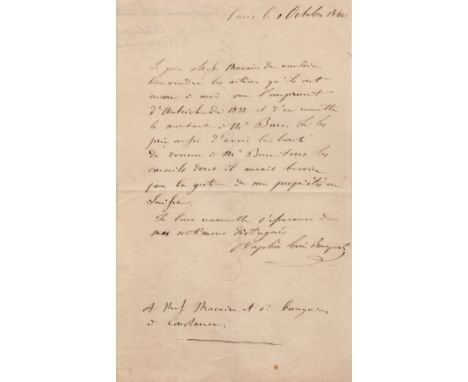 Paris le 1 Octobre 1840
Je prie Mess. Macaire de vouloir
bien vendre les actions qu'ils ont
encore à moi sur l'emprunt
d'Autriche de 1832 et d'en remettre
le montant à Mr Bure. Je les
prie aussi d'avoir la bonté
de donner à Mr Bure tous les
conseils dont il aurait besoin
pour la gestion de mes propriétés en
Suisse.
Je leur renouvelle l'assurance de
mes sentimens distingués
Napoléon Louis Bonaparte
A Mess. Macaire et Cie banquiers
à Constance.